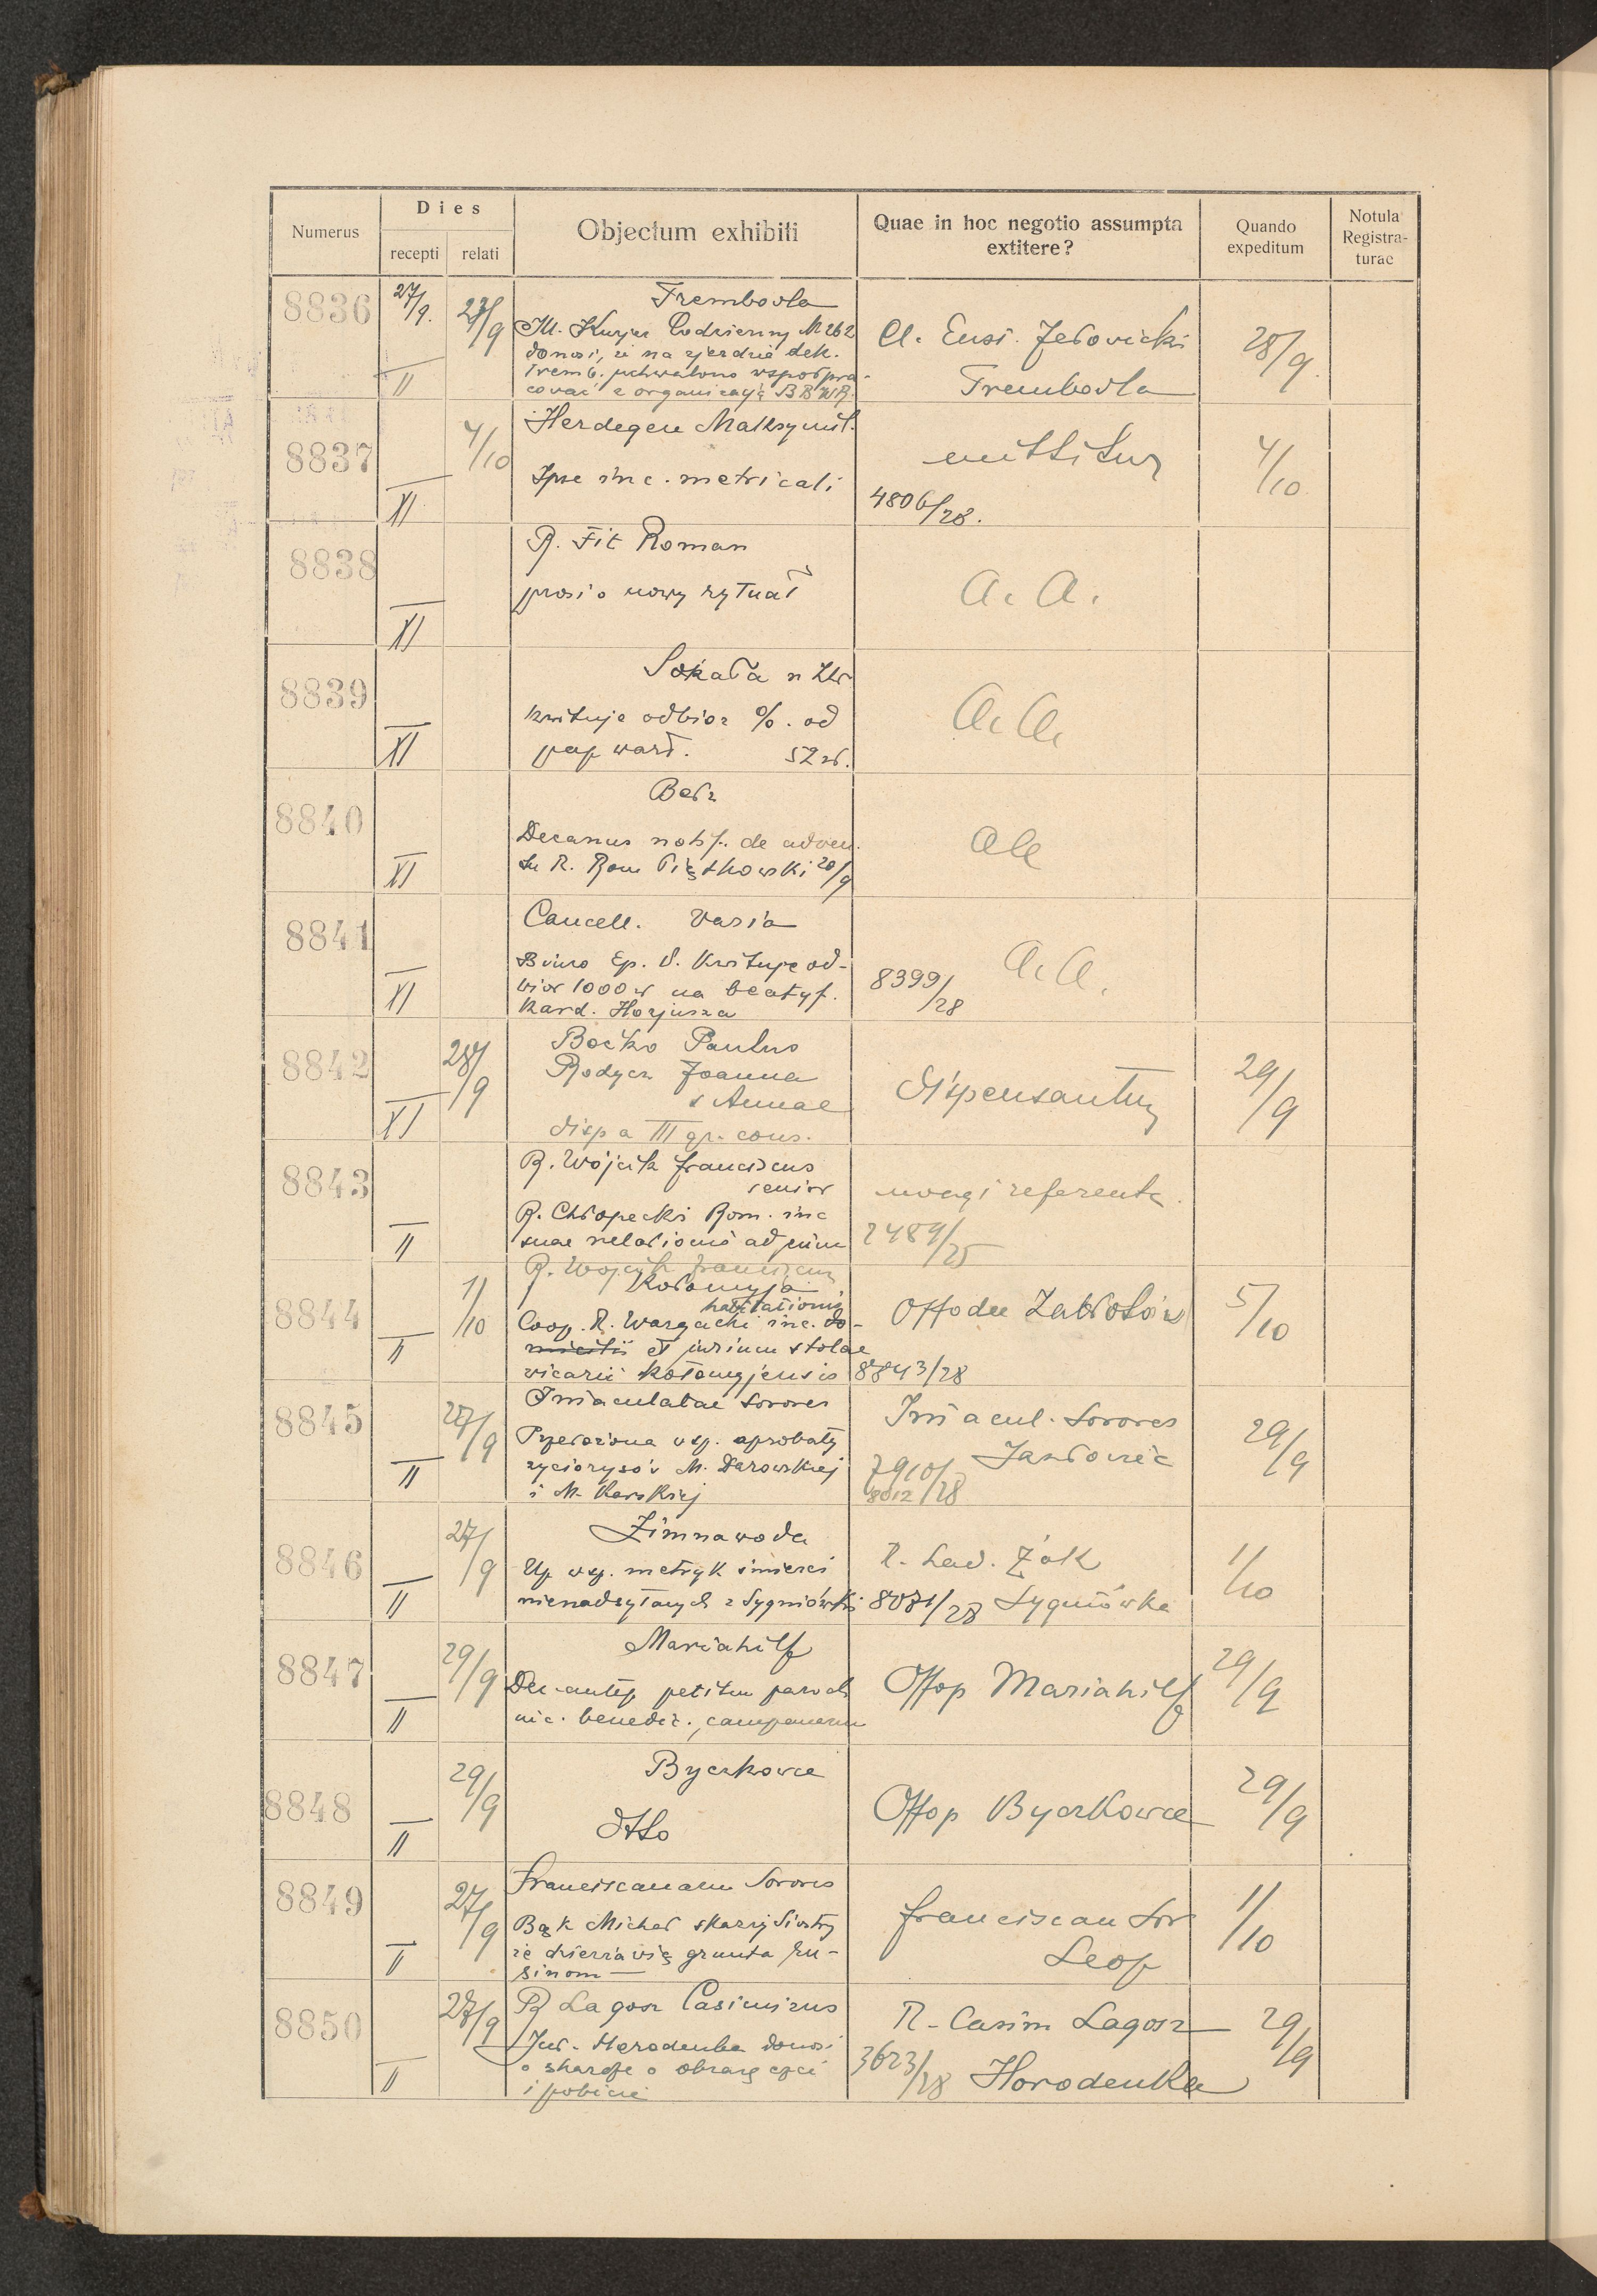 Numerus
Dies
recepti
relati
Objectum exhibiti
Quae in hoc negotio assumpta
extitere?
Quando
expeditum
Notula
Registra-
turae
8836
27/9.
II
27/9
Trembowla
Ill. Kurjer Codzienny № 262
donosi, że na zjeździe dek.
Tremb. uchwalono współpra-
cować z organizacją BBWR.
Cl. Eust. Jełowicki
Trembowla
28/9.
8837
XI
4/10
Herdegen Maksymil.
Ipse inc. metricali
mittitur
4806/28.
4/10
8838
XI
R. Fit Roman
prosi o nowy rytuał
a. a.
8839
XI
Sokała n Zbr
kwituje odbiór %. od
pap wart. 52 zł.
a. a.
8840
XI
Bełz
Decanus notif. de adven
tu R. Rom Piętkowski 20/9
aa
8841
XI
Cancell. Varia
Biuro Ep. P. kwituje od-
biór 1000 zł na beatyf.
Kard. Hozjusza
a. a.
8399/28
8842
XI
28/9
Boćko Paulus
Rodycz Joanna
s Annae
disp a III gr. cons.
dispensantur
29/9
8843
II
R. Wójcik Franciscus
senior
R. Chłopecki Rom. inc
suae relationis ad
uwagi referenta.
2489/25
8844
II
1/10
R. Wojcik Franciscus
Kołomyja
habitationis
Coop. R. Wargacki inc. do-
micilii et jurium stolae
vicarii kołomyjensis
Offodec Zabłotów
8843/28
5/10
8845
II
27/9
Immaculatae Sorores
Przełożona wsp. aprobaty
życiorysów M. Darowskiej
i M. Karskiej
Immacul. Sorores
Jazłowiec
7910/
8012/28
29/9
8846
II
27/9
Zimnawoda
Up wsp. metryk śmierci
nienadsyłanych z Sygniówki
R. Lad. Żak
8071/28 Sygniówka
1/10
8847
II
29/9
Mariahilf
Dec antep petitum paroch
inc. benedic. campanarum
Offop Mariahilf
29/9
8848
II
29/9
Byczkowce
dtto
Offop Byczkowce
29/9
8849
II
27/9
Franciscanarum Sorores
Bąk Michał skarży Siostry
że dzierżawią grunta Ru-
sinom
Franciscan Sor
Leop
1/10
8850
II
27/9
R Lagosz Casimirus
Jud. Horodenka donosi
o skardze o obrazę czci
i pobicie
R. Casim Lagosz
3623/28 Horodenka
29/9